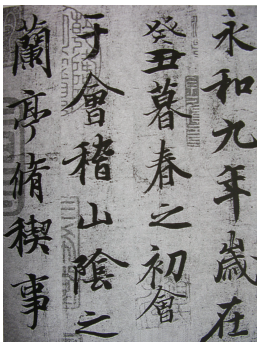 永和九年歲在
癸丑暮春之初會
于會稽山陰之
蘭亭脩稧事